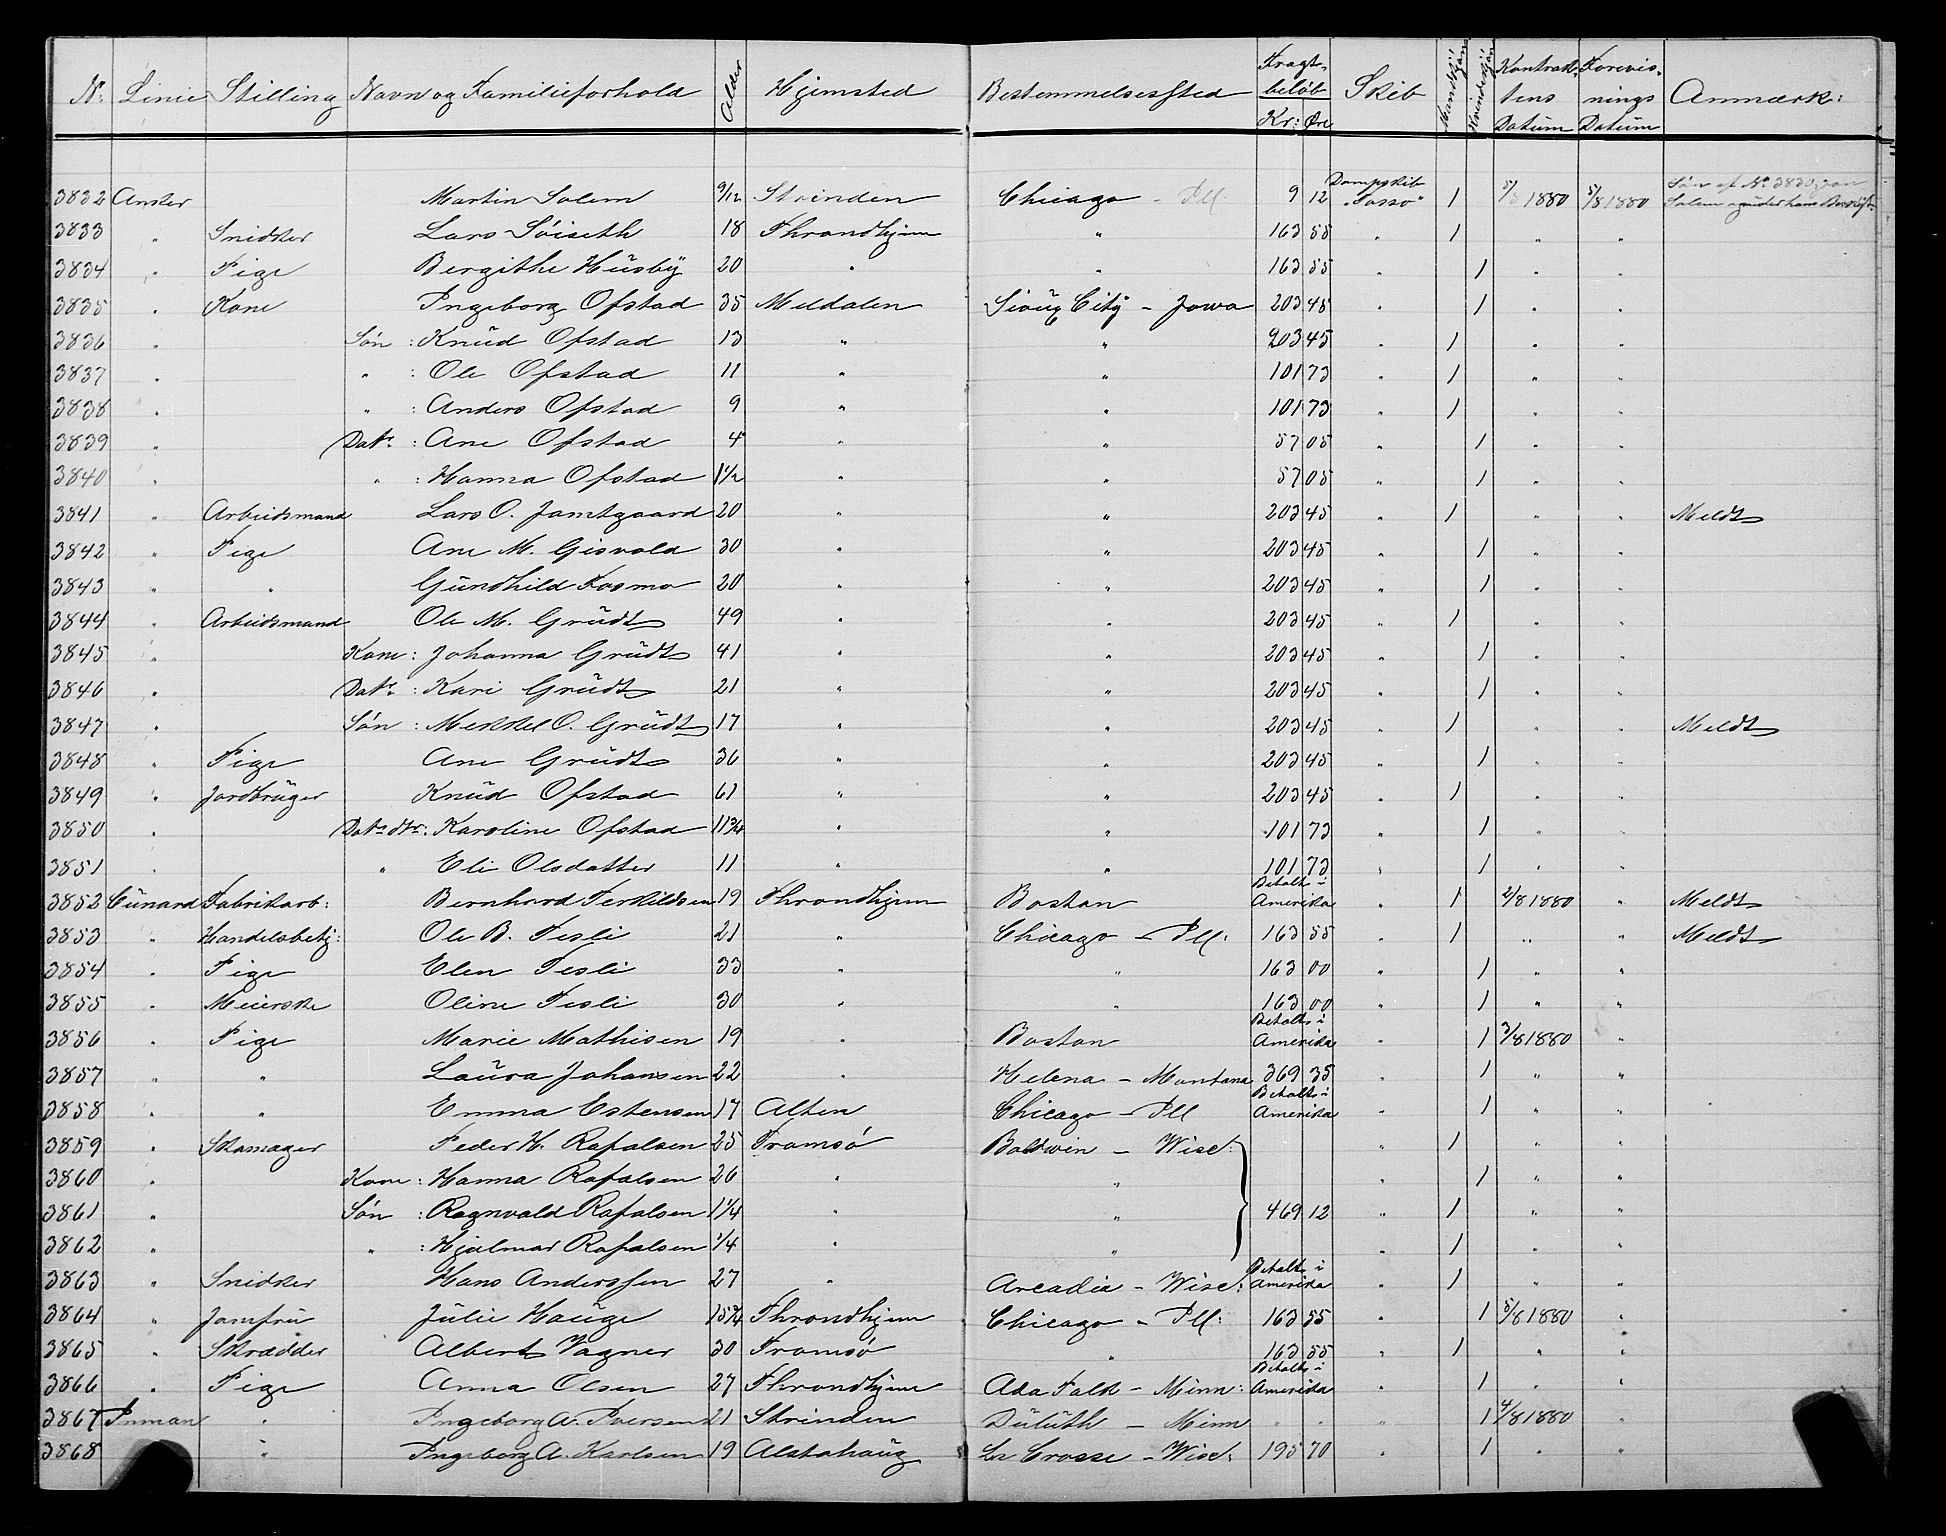 Nr. Linie Stilling Navn og Familieforhold Alder Hjemsted Bestemmelsessted Fragt-beløb Kr: Øre Skib Mandkjøn Kvindekjøn Kontrak-tens Datum Forevis-nings Datum Anmærk:
3832 Anker Martin Solem 9/12 Strinden Chicago - Ill. 9 12 Dampskib "Tasso" 1 5/8 1880 5/8 1880 Søn af No 3830, Solem
3833 " Snidker Lars Söiseth 18 Throndhjem " 163 55 " 1 " "
3834 " Pige Bergithe Husby 20 " " 163 55 " 1 " "
3835 " Kone Ingeborg Ofstad 35 Meldalen Sioux City - Jowa 203 45 " 1 " "
3836 " Søn : Knud Ofstad 13 " " 203 45 " 1 " "
3837 " " : Ole Ofstad 11 " " 101 73 " 1 " "
3838 " " : Anders Ofstad 9 " " 101 73 " 1 " "
3839 " Datr. : Ane Ofstad 4 " " 57 05 " 1 " "
3840 " " : Hanna Ofstad 1 1/2 " " 57 05 " 1 " "
3841 " Arbeidsmand Lars O. Jamtgaard 20 " " 203 45 " 1 " " Meldt
3842 " Pige Ane M. Gisvold 30 " " 203 45 " 1 " "
3843 " " Gundhild Fosmo 20 " " 203 45 " 1 " "
3844 " Arbeidsmand Ole M. Grudt 49 " " 203 45 " 1 " "
3845 " Kone : Johanna Grudt 41 " " 203 45 " 1 " "
3846 " Datr. : Kari Grudt 21 " " 203 45 " 1 " "
3847 " Søn : Mekkel O. Grudt 17 " " 203 45 " 1 " " Meldt
3848 " Pige Ane Grudt 36 " " 203 45 " 1 " "
3849 " Jordbruger Knud Ofstad 61 " " 203 45 " 1 " "
3850 " Datrs dtr. Karoline Ofstad 11 3/4 " " 101 73 " 1 " "
3851 " " Eli Olsdatter 11 " " 101 73 " 1 " "
3852 Cunard Fabrikarb: Bernhard Terkildsen 19 Throndhjem Boston Betalt i Amerika " 1 2/8 1880 " Meldt
3853 " Handelsbetj: Ole B. Tesli 21 " Chicago - Ill: 163 55 " 1 " " Meldt
3854 " Pige Elen Tesli 33 " " 163 00 " 1 " "
3855 " Meierske Oline Tesli 30 " " 163 00 " 1 " "
3856 " Pige Marie Mathisen 19 " Boston Betalt i Amerika " 1 3/8 1880 "
3857 " " Laura Johansen 22 " Helena - Montana 369 35 " 1 " "
3858 " " Emma Estensen 17 Alten Chicago - Ill Betalt i Amerika " 1 " "
3859 " Skomager Peder H. Rafalsen 25 Tromsø Baldwin - Wisc: " 1 " "
3860 " Kone : Hanna Rafalsen 26 " " " 1 " "
3861 " Søn : Ragnvald Rafalsen 1 1/4 " " 469 12 " 1 " "
3862 " " : Hjalmar Rafalsen 1/4 " " " 1 " "
3863 " Snidker Hans Anderssen 27 " Arcadia - Wisc: Betalt i Amerika " 1 " "
3864 " Jomfru Julie Hauge 15 3/4 Throndhjem Chicago - Ill: 163 55 " 1 5/8 1880 "
3865 " Skrædder Albert Vagner 30 Tromsø " 163 55 " 1 " "
3866 " Pige Anna Olsen 27 Throndhjem Ada Falk - Minn: Betalt i Amerika " 1 " "
3867 Inman " Ingeborg A. Iversen 21 Strinden Duluth - Minn " " " 1 4/8 1880 "
3868 " Ingeborg A. Karlsen 19 Alstahaug La Crosse - Wisc: 195 70 " 1 " "